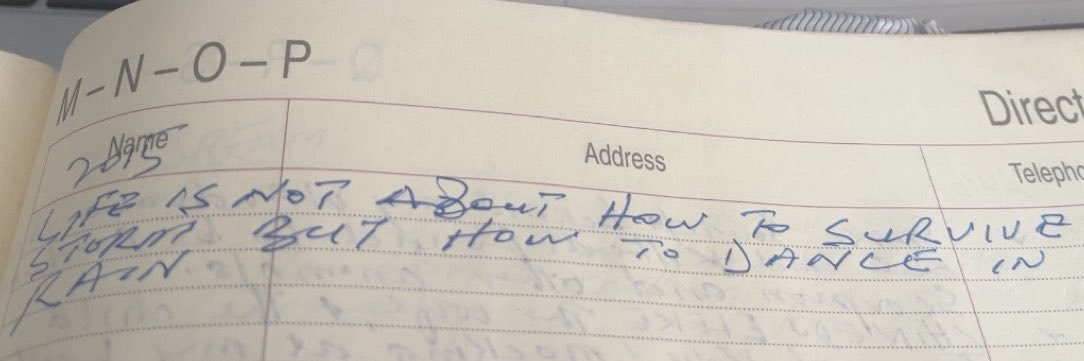 M-N-O-P
Direct
Name
Address
Telepho
2015
LIFE IS NOT ABOUT HOW TO SURVIVE
STORM BUT HOW TO DANCE IN
RAIN